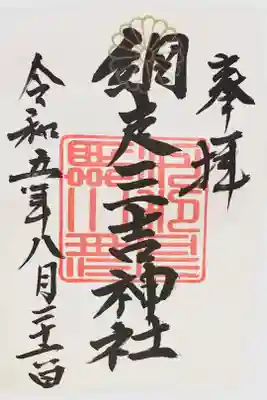 奉拝
網走三吉神社
令和五年八月二十二日